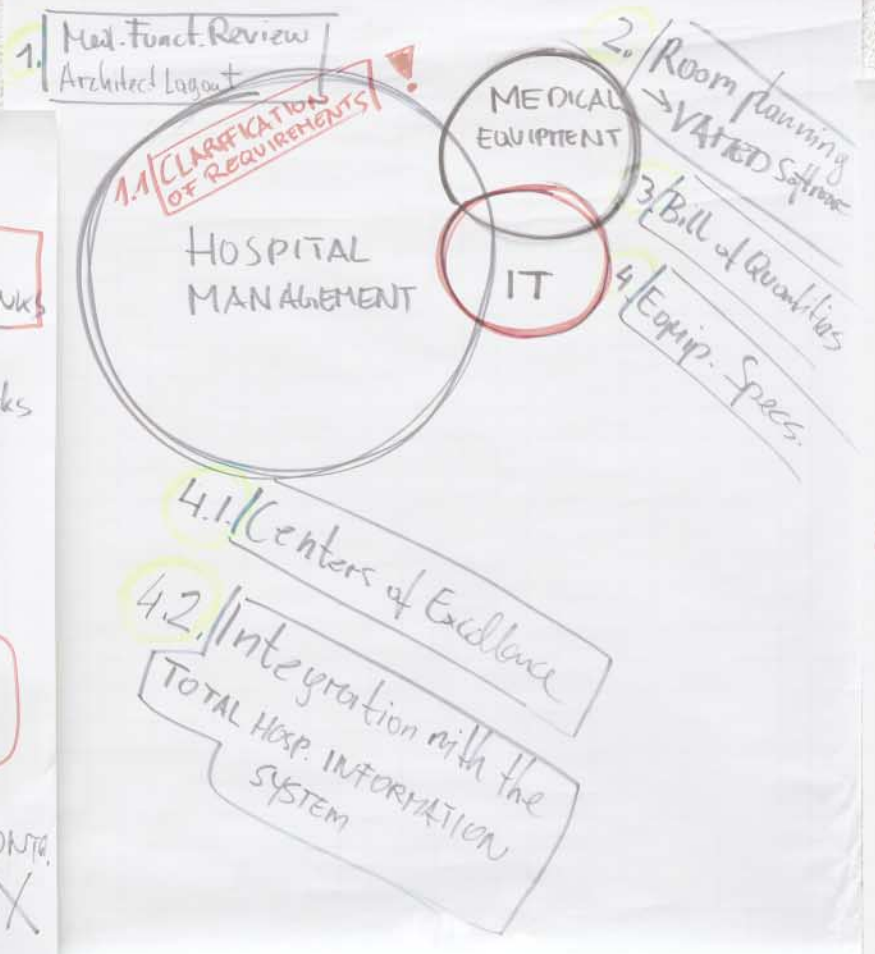 1. Med. Funct. Review
Architect Layout
1.1 CLARIFICATION
OF REQUIREMENTS !
HOSPITAL
MANAGEMENT
MEDICAL
EQUIPMENT
IT
2. Room planning
→ VAMED Software
3. Bill of Quantities
4. Equip. Specs.
4.1. Centers of Excellence
4.2. Integration with the
TOTAL HOSP. INFORMATION
SYSTEM
ks
X